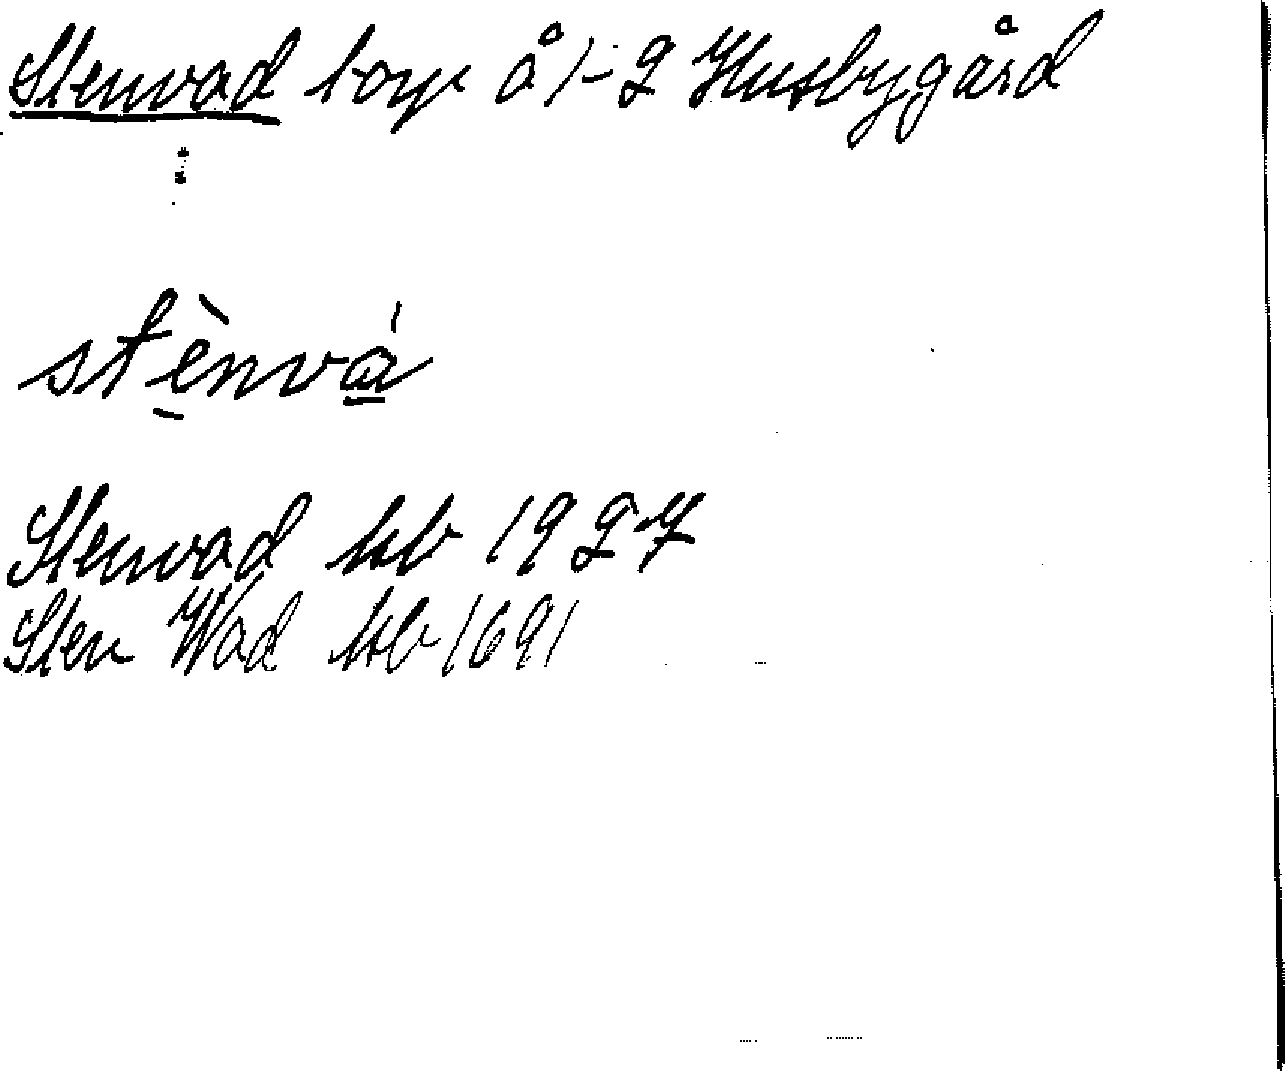 Stenvad torp å 1-2 Husbygård
stènvá
Stenvad kb 1927
Sten Wad kb 1691